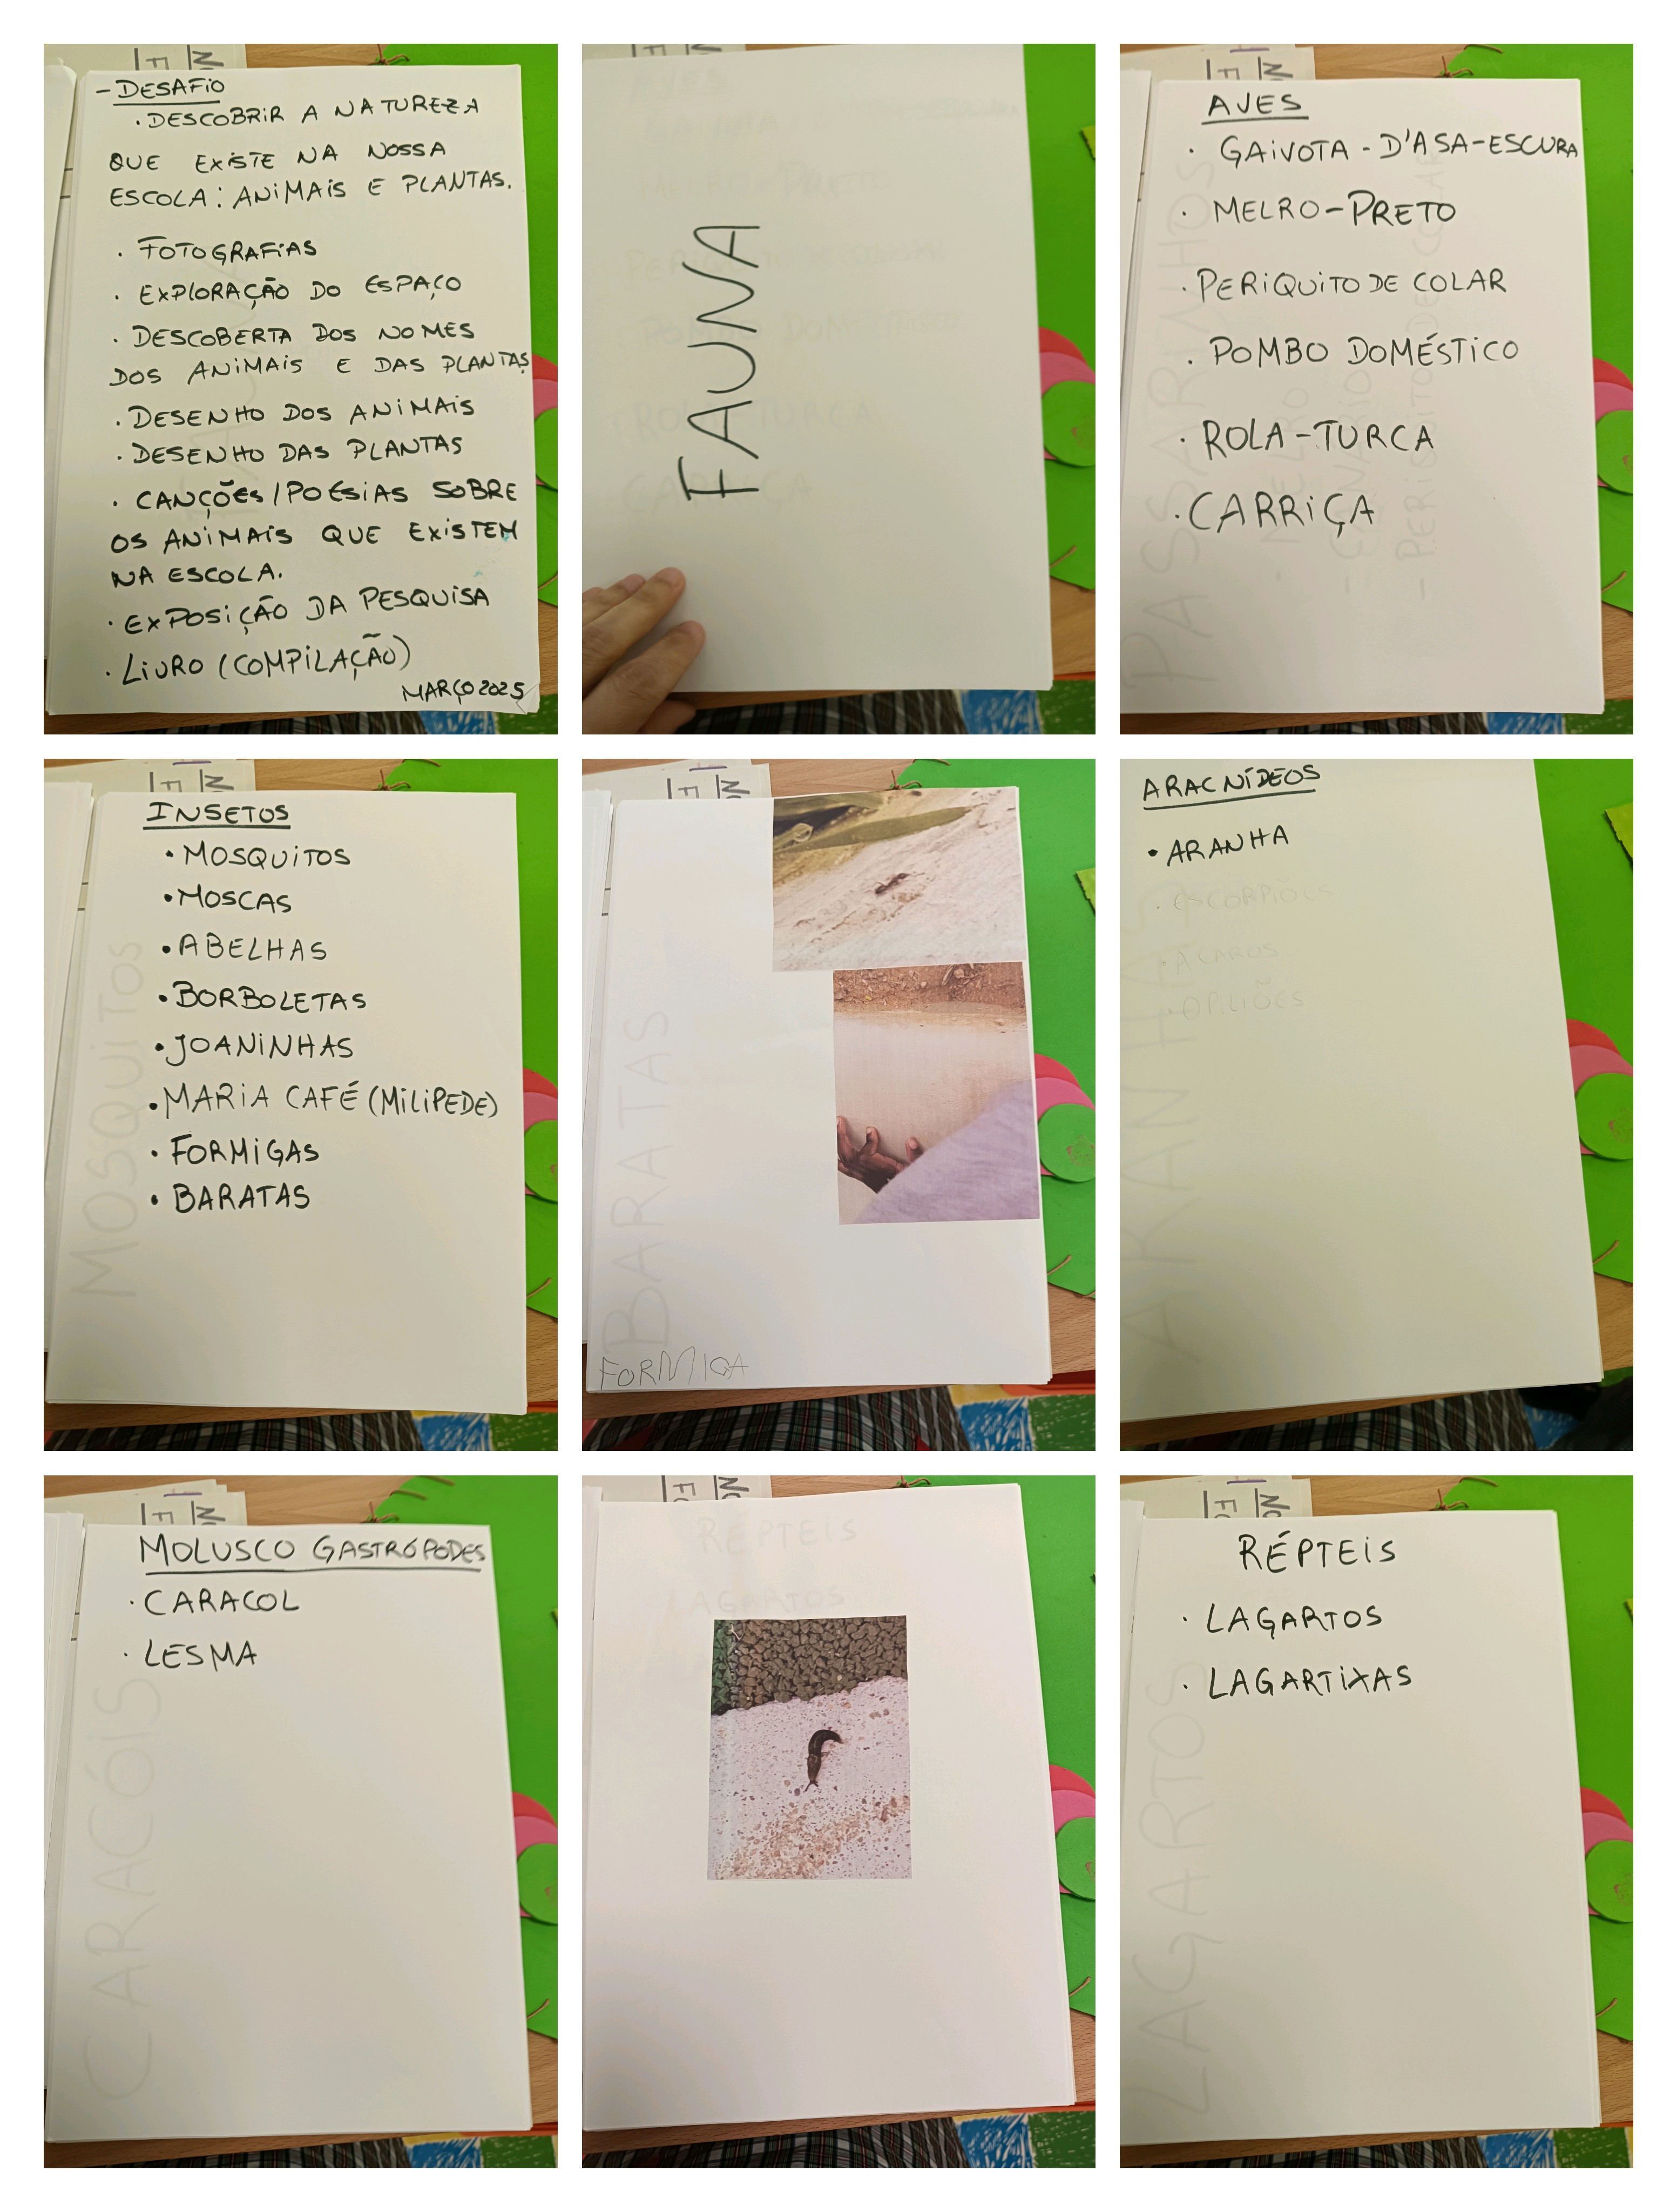 - DESAFIO
· DESCOBRIR A NATUREZA
QUE EXISTE NA NOSSA
ESCOLA: ANIMAIS E PLANTAS.
· FOTOGRAFIAS
· EXPLORAÇÃO DO ESPAÇO
· DESCOBERTA DOS NOMES
DOS ANIMAIS E DAS PLANTAS
· DESENHO DOS ANIMAIS
· DESENHO DAS PLANTAS
· CANÇÕES/POESIAS SOBRE
OS ANIMAIS QUE EXISTEM
NA ESCOLA.
· EXPOSIÇÃO DA PESQUISA
· LIVRO (COMPILAÇÃO)
MARÇO 2025
FAUNA
AVES
· GAIVOTA - D'ASA-ESCURA
· MELRO-PRETO
· PERIQUITO DE COLAR
· POMBO DOMÉSTICO
· ROLA-TURCA
· CARRIÇA
PASSARINHOS
- MELRO
- CANÁRIO
- PERIQUITO DE COLAR
INSETOS
• MOSQUITOS
• MOSCAS
• ABELHAS
• BORBOLETAS
• JOANINHAS
• MARIA CAFÉ (MILIPEDE)
• FORMIGAS
• BARATAS
MOSQUITOS
BARATAS
FORMIGA
ARACNÍDEOS
• ARANHA
· ESCORPIÕES
· ÁCAROS
· OPILIÕES
ARANHAS
MOLUSCO GASTRÓPODES
· CARACOL
· LESMA
CARACÓIS
RÉPTEIS
LAGARTOS
RÉPTEIS
· LAGARTOS
· LAGARTIXAS
LAGARTOS